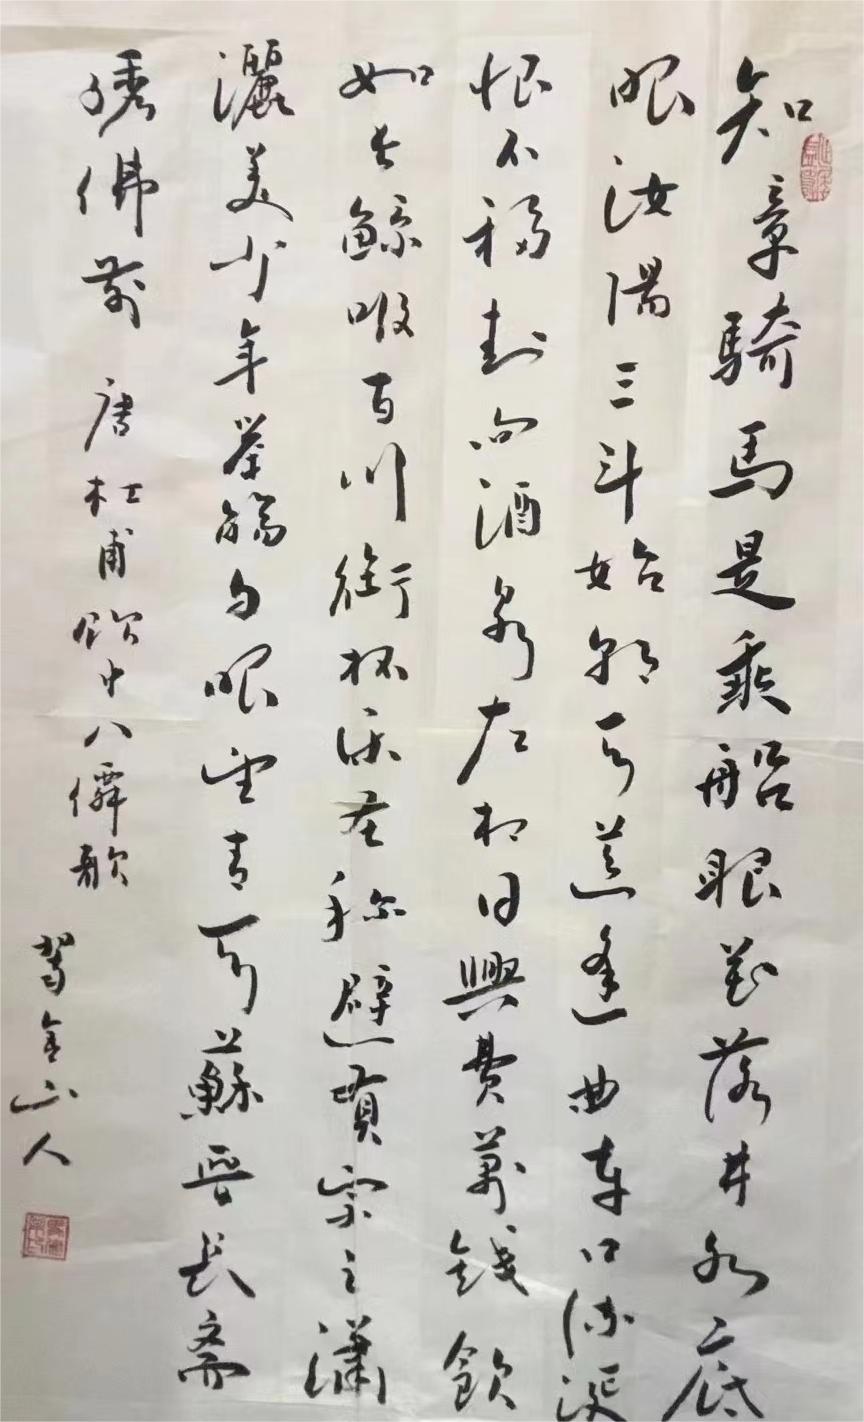 知章騎馬是乘船眼花落井水底
眠汝陽三斗始朝天道逢曲車口流涎
恨不移封向酒泉左相日興費萬錢飲
如長鯨吸百川銜杯樂聖稱避賢宗之瀟
灑美少年舉觴白眼望青天蘇晉長齋
繡佛前 唐杜甫飲中八僊歌
金山人